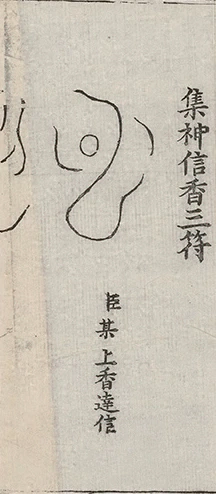 集神信香三符
臣某上香達信